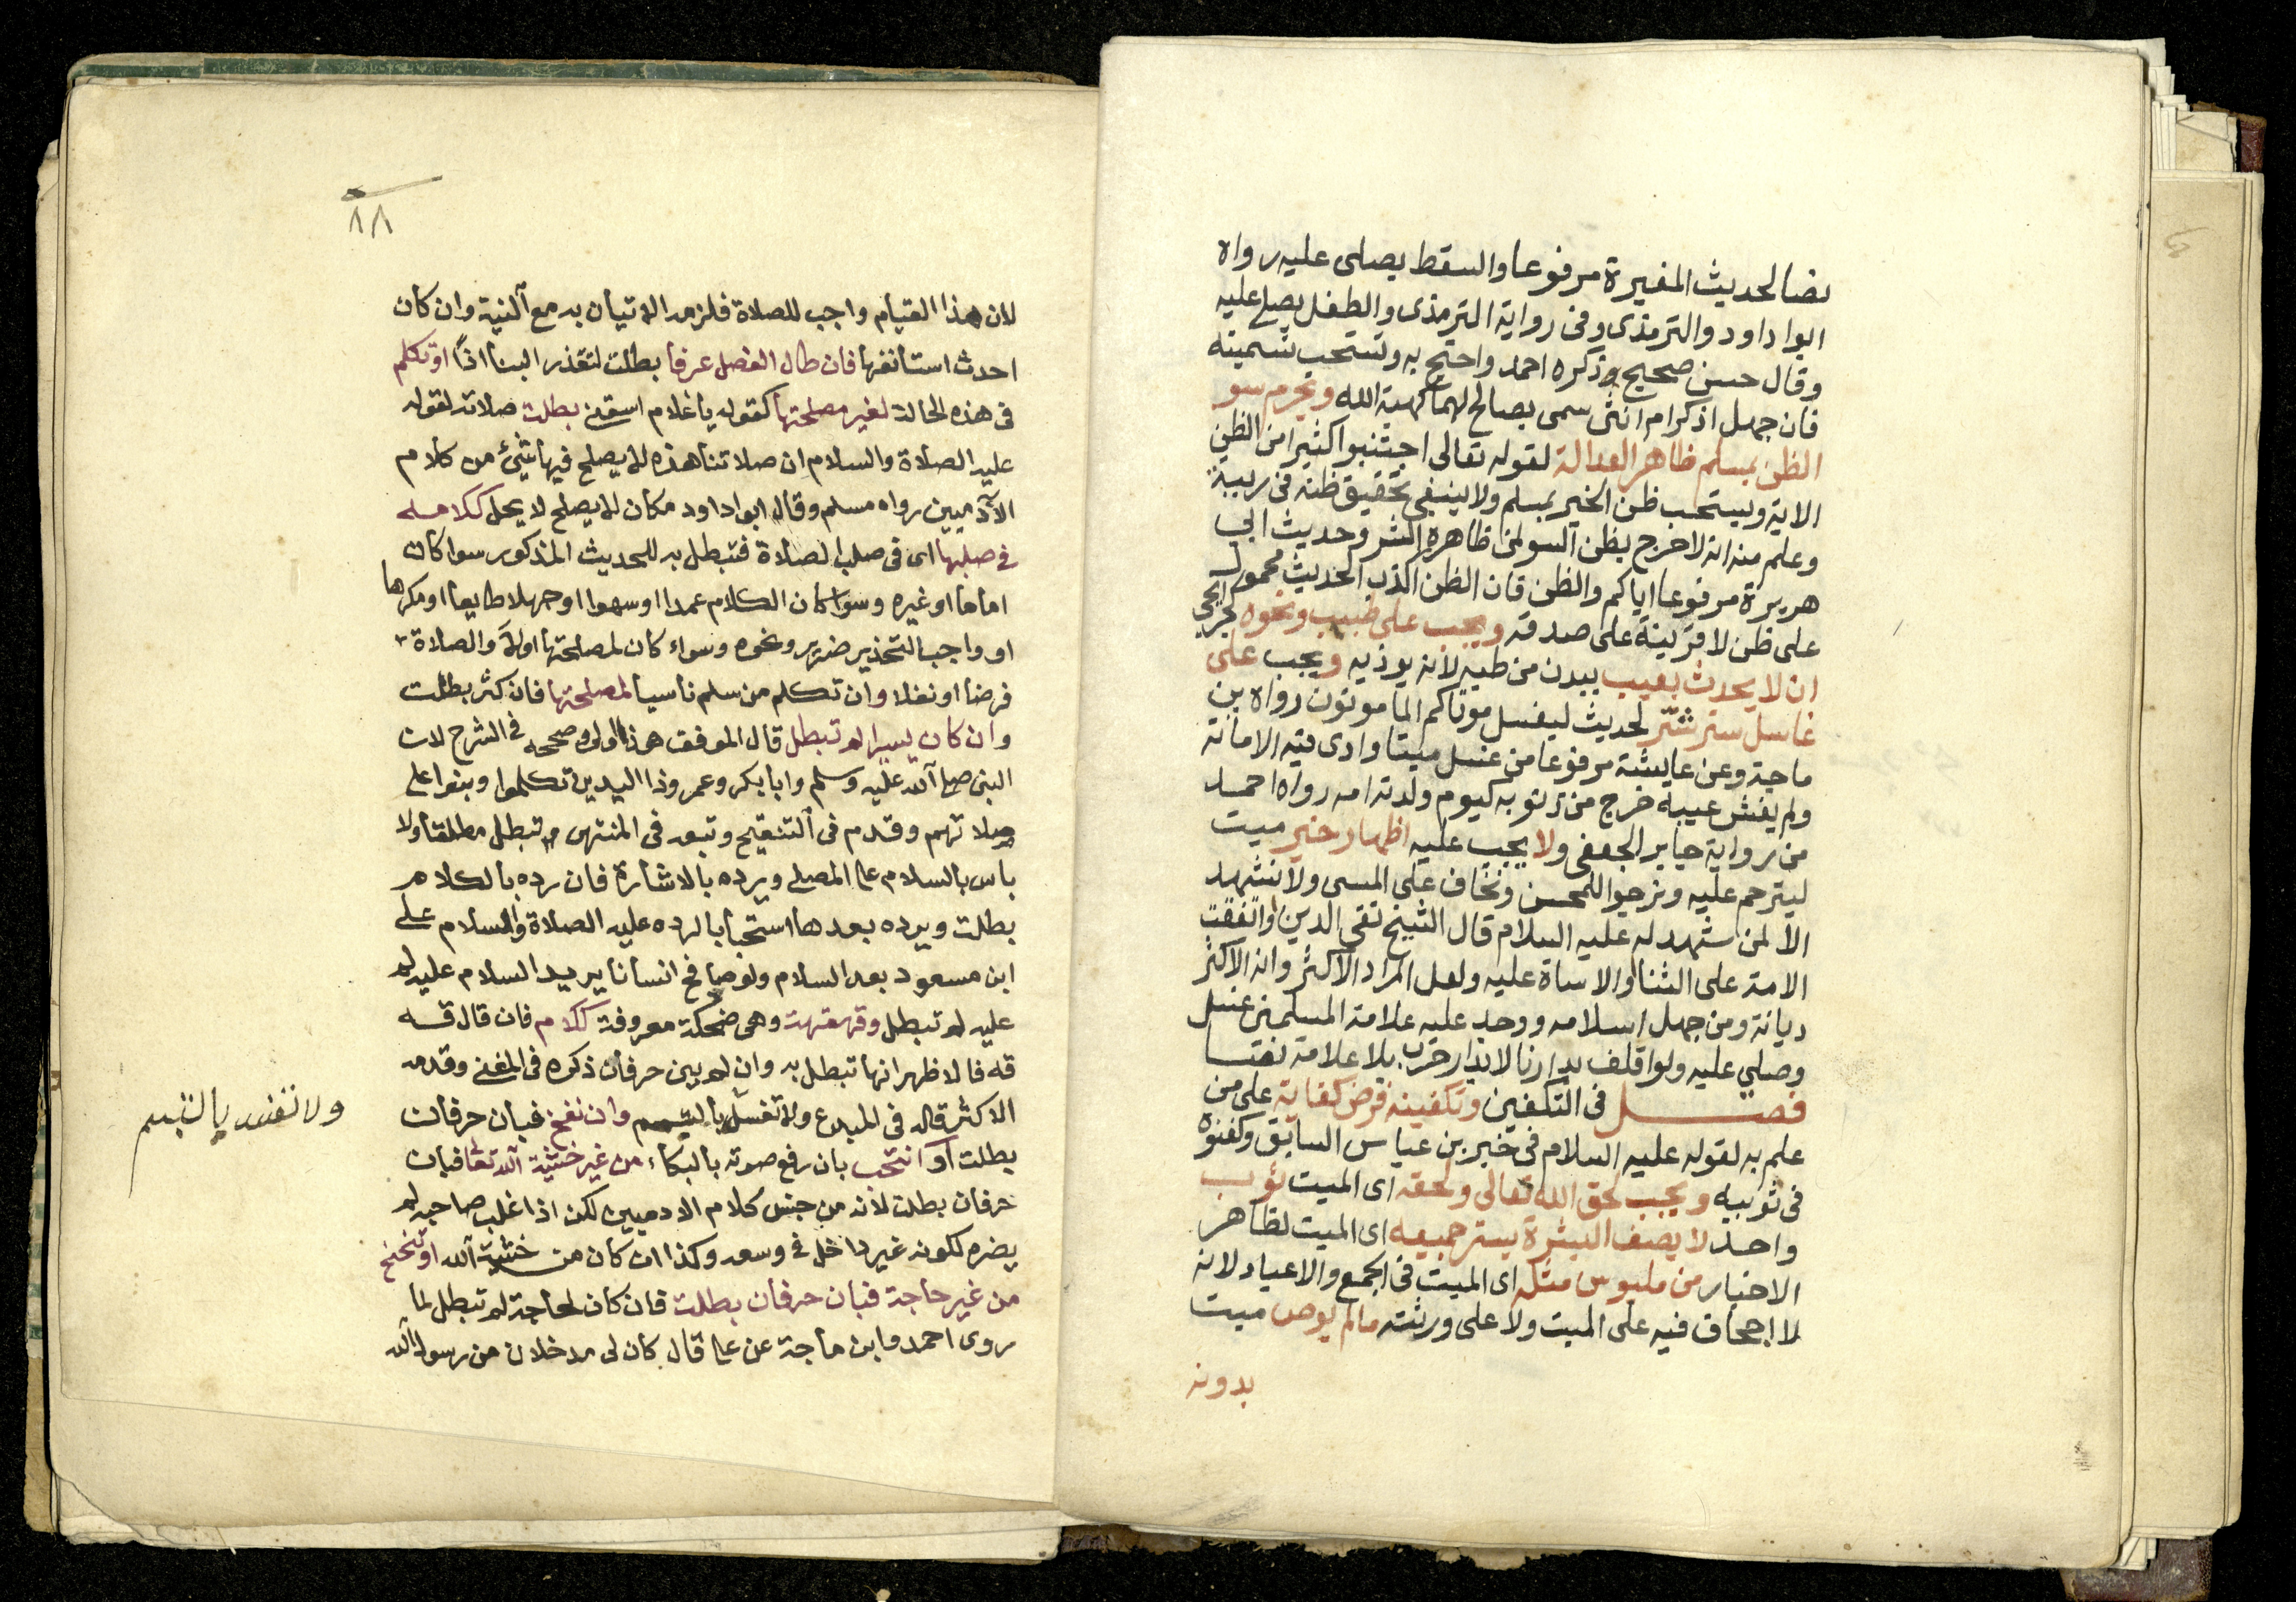 نصا لحديث المغيرة مرفوعا والسقط يصلى عليه رواه
ابوا داود والترمذى وفى رواية الترمذى والطفل يصلى عليه
وقال حسن صحيح وذكره احمد واحتج به وتستحب تسميته
فان جهل اذكر ام انثى سمى بصالح لهما كهبة الله ويحرم سو
الظن بمسلم ظاهر العدالة لقوله تعالى اجتنبوا كثيرا من الظن
الاية ويستحب ظن الخير بمسلم ولا ينبغى تحقيق ظنه فى ريبة
وعلم منه انه لا حرج بظن السو لمن ظاهره الشر وحديث ابي
هريرة مرفوعا اياكم والظن فان الظن اكذب الحديث محمول
على ظن لا قرينة على صدقه ويجب على طبيب ونحوه كجرايحي
ان لا يحدث بعيب ببدن من طبه لانه يوذيه ويجب على
غاسل ستر شتر لحديث ليغسل موتاكم المامونون رواه بن
ماجة وعن عايشة مرفوعا من غسل ميتا وادى فيه الامانة
ولم يفش عيبه خرج من ذنوبه كيوم ولدته امه رواه احمد
من رواية جابر الجعفى ولا يجب عليه اظهار خير ميت
ليترحم عليه ونرجوا للمحسن ونخاف على المسى ولا نشهد
الا لمن شهد له عليه السلام قال الشيخ تقى الدين او اتفقت
الامة على الثنا او الاساة عليه ولعل المراد الاكثر وانه الاكثر
ديانة ومن جهل اسلامه ووجد عليه علامة المسلمين غسل
وصلي عليه ولو اقلف بدارنا لا بدار حرب بلا علامة نصا
فصل فى التكفين وتكفينه فرض كفاية على من
علم به لقوله عليه السلام فى خبر بن عباس السابق وكفنوه
فى ثوبيه ويجب لحق الله تعالى ولحقه اى الميت ثوب
واحد لا يصف البشرة يستر جميعه اى الميت لظاهر
الاخبار من ملبوس مثله اى الميت فى الجمع والاعياد لانه
لا اجحاف فيه على الميت ولا على ورثته مالم يوص ميت
بدونه
٨٨
لان هذا القيام واجب للصلاة فلزمه الاتيان به مع النية وان كان
احدث استأنفها فان طال الفصل عرفا بطلت لتعذر البنا اذاً او تكلم
فى هذه الحالة لغير مصلحتها كقوله يا غلام اسقنى بطلت صلاته لقوله
عليه الصلاة والسلام ان صلاتنا هذه لا يصلح فيها شئ من كلام
الآدميين رواه مسلم وقال ابوا داود مكان لا يصلح لا يحل ككلامه
فى صلبها اى فى صلب الصلاة فتبطل به للحديث المذكور سوا كان
اماما او غيره وسوا كان الكلام عمدا او سهوا او جهلا طايعا او مكرها
او واجب التحذير ضرير ونحوه وسواء كان لمصلحتها اولا والصلاة
فرضا او نفلا وان تكلم من سلم ناسيا لمصلحتها فان كثر بطلت
وان كان يسيرا لم تبطل قال الموفق هذا اولى وصححه فى الشرح لان
النبى صلى الله عليه وسلم وابا بكر وعمر وذا اليدين تكلموا وبنوا على
صلاتهم وقدم فى التنقيح وتبعه فى المنتهى تبطل مطلقا ولا
باس بالسلام على المصلى ويرده بالاشارة فان رده بالكلام
بطلت ويرده بعدها استحبابا لرده عليه الصلاة والسلام على
ابن مسعود بعد السلام ولو صافح انسانا يريد السلام عليه لم
عليه لم تبطل وقهقهة وهى ضحكة معروفة ككلام فان قال قه
قه فالاظهر انها تبطل به وان لم يبن حرفان ذكره فى المغنى وقدمه
الاكثر قاله فى المبدع ولا تفسد بالتبسم وان نفخ فبان حرفان
بطلت او انتحب بان رفع صوته بالبكاء من غير خشية الله تعالى فبان
حرفان بطلت لانه من جنس كلام الادميين لكن اذا غلب صاحبه لم
يضره لكونه غير داخل فى وسعه وكذا ان كان من خشية الله او تنحنح
من غير حاجة فبان حرفان بطلت فان كان لحاجة لم تبطل لما
روى احمد وابن ماجة عن على قال كان لى مدخلان من رسول الله
ولا تفسد بالتبسم